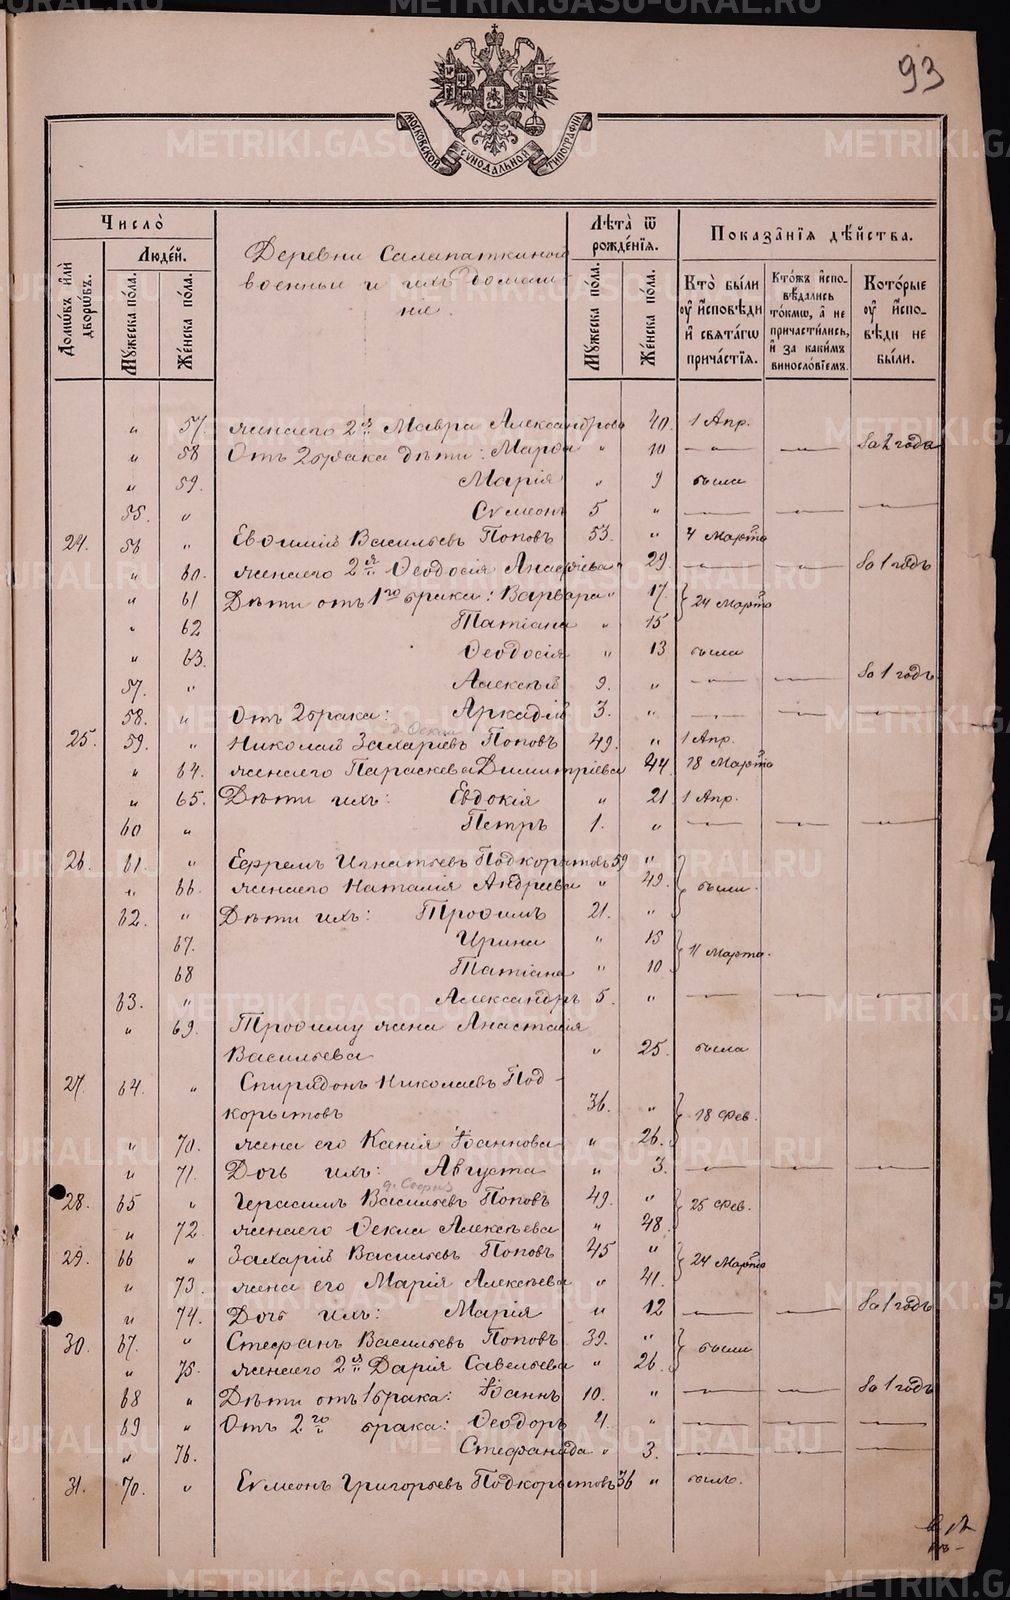 93
МОСКОВСКОЙ СѴНОДАЛЬНОЙ ТИПОГРАФІИ
Число̀
Людей.
Домѡвъ и҆лѝ дворѡвъ.
Мꙋжеска по́ла.
Же́нска по́ла.
Деревни Салапаткиной
военныи и ихъ домаш
нія.
Лѣта̀ ѿ рожде́нїѧ.
Мꙋжеска по́ла.
Же́нска по́ла.
Показа̑нїѧ дѣ́йства.
Кто̀ бы́ли ᲂу҆ и҆сповѣди и҆ свѧта́гѡ прича́стїѧ.
Кто́жъ и҆спо- вѣдались то́кмѡ, а҆ не причасти́лись, и҆ за каки́мъ винословїемъ.
Кото́рые ᲂу҆ и҆спо- вѣди не бы́ли.
„ 57. жена его 2я Мавра Александрова 40. 1 Апр.
„ 58 Отъ 2 брака дѣти: Марѳа „ 10 — — За 2 года
„ 59. Марія „ 9 была
55. „ Сѵмеонъ 5 „ — — —
24. 56 „ Евѳимій Васильевъ Поповъ 53. „ 4 Марта
„ 60. жена его 2я Ѳеодосія „ 29 — — За 1 годъ
„ 61 Дѣти отъ 1го брака: Варвара „ 17. } 24 Марта
„ 62 Татіана „ 15
„ 63. Ѳеодосія „ 13 была
57. „ Алексѣй 9. „ — — За 1 годъ
58. „ Отъ 2 брака: Аркадій 3. „ — — —
25. 59. „ Николай Захаріевъ Поповъ 49. „ 1 Апр.
„ 64. жена его Параскева Димитріева 44. 18 Марта
„ 65. Дѣти ихъ: Евдокія „ 21 1 Апр.
60 „ Петръ 1. „ — — —
26. 61 „ Ефремъ Игнатьевъ Подкорытовъ 59 „
„ 66. жена его Наталія Андреева „ 49. } были.
62. „ Дѣти ихъ: Трофимъ 21. „
67. Ирина „ 15 } 11 Марта.
68 Татіана „ 10
63. „ Александръ 5. „ — — —
„ 69. Трофиму жена Анастасія
Васильева „ 25. была
27. 64. „ Спиридонъ Николаевъ Под-
корытовъ 36. „ } 18 Фев.
„ 70. жена его Ксенія Іоаннова „ 26.
„ 71. Дочь ихъ: Августа „ 3. — — —
28. 65 „ Герасимъ Васильевъ Поповъ 49. „ } 25 Фев.
„ 72. жена его Ѳекла Алексѣева „ 48.
29. 66 „ Захарій Васильевъ Поповъ 45 „ } 24 Марта
„ 73. жена его Марія Алексѣева „ 41.
„ 74. Дочь ихъ: Марія „ 12 — — За 1 годъ
30. 67. „ Стефанъ Васильевъ Поповъ 39. „ } были
„ 75. жена его 2я Дарія Савельева „ 26.
68 „ Дѣти отъ 1 брака: Іоаннъ 10. „ — — За 1 годъ
69 „ Отъ 2го брака: Ѳеодоръ 4. „ — — —
„ 76. Стефанида „ 3. — — —
31. 70. „ Сѵмеонъ Григорьевъ Подкорытовъ 36 „ былъ.
METRIKI.GASO-URAL.RU